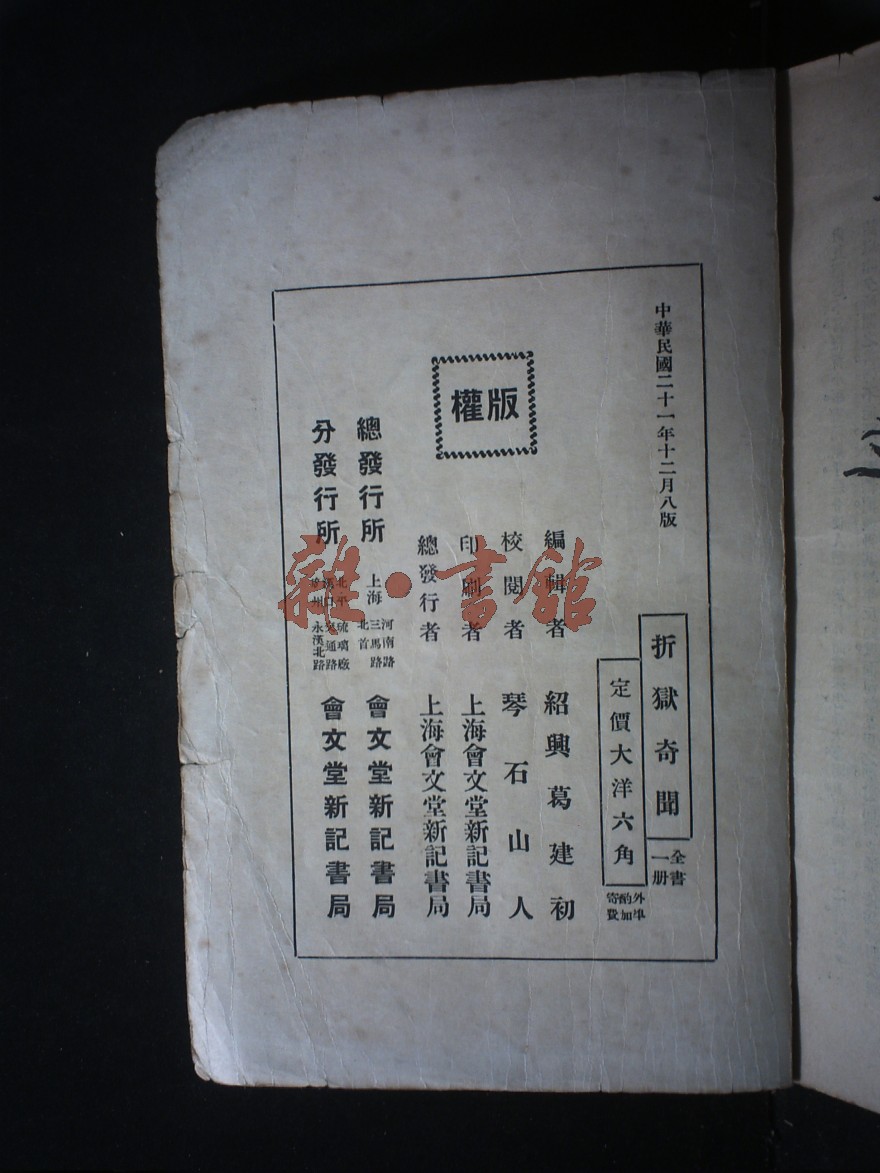 中華民國二十一年十二月八版
折獄奇聞
全書
一册
定價大洋六角
外埠
酌加
寄費
版權
編輯者 紹興葛建初
校閱者 琴石山人
印刷者 上海會文堂新記書局
總發行者 上海會文堂新記書局
總發行所 上海 河南路 三馬路 北首 會文堂新記書局
分發行所 北平 琉璃廠 通路 州 永漢北路 會文堂新記書局
雜·書館